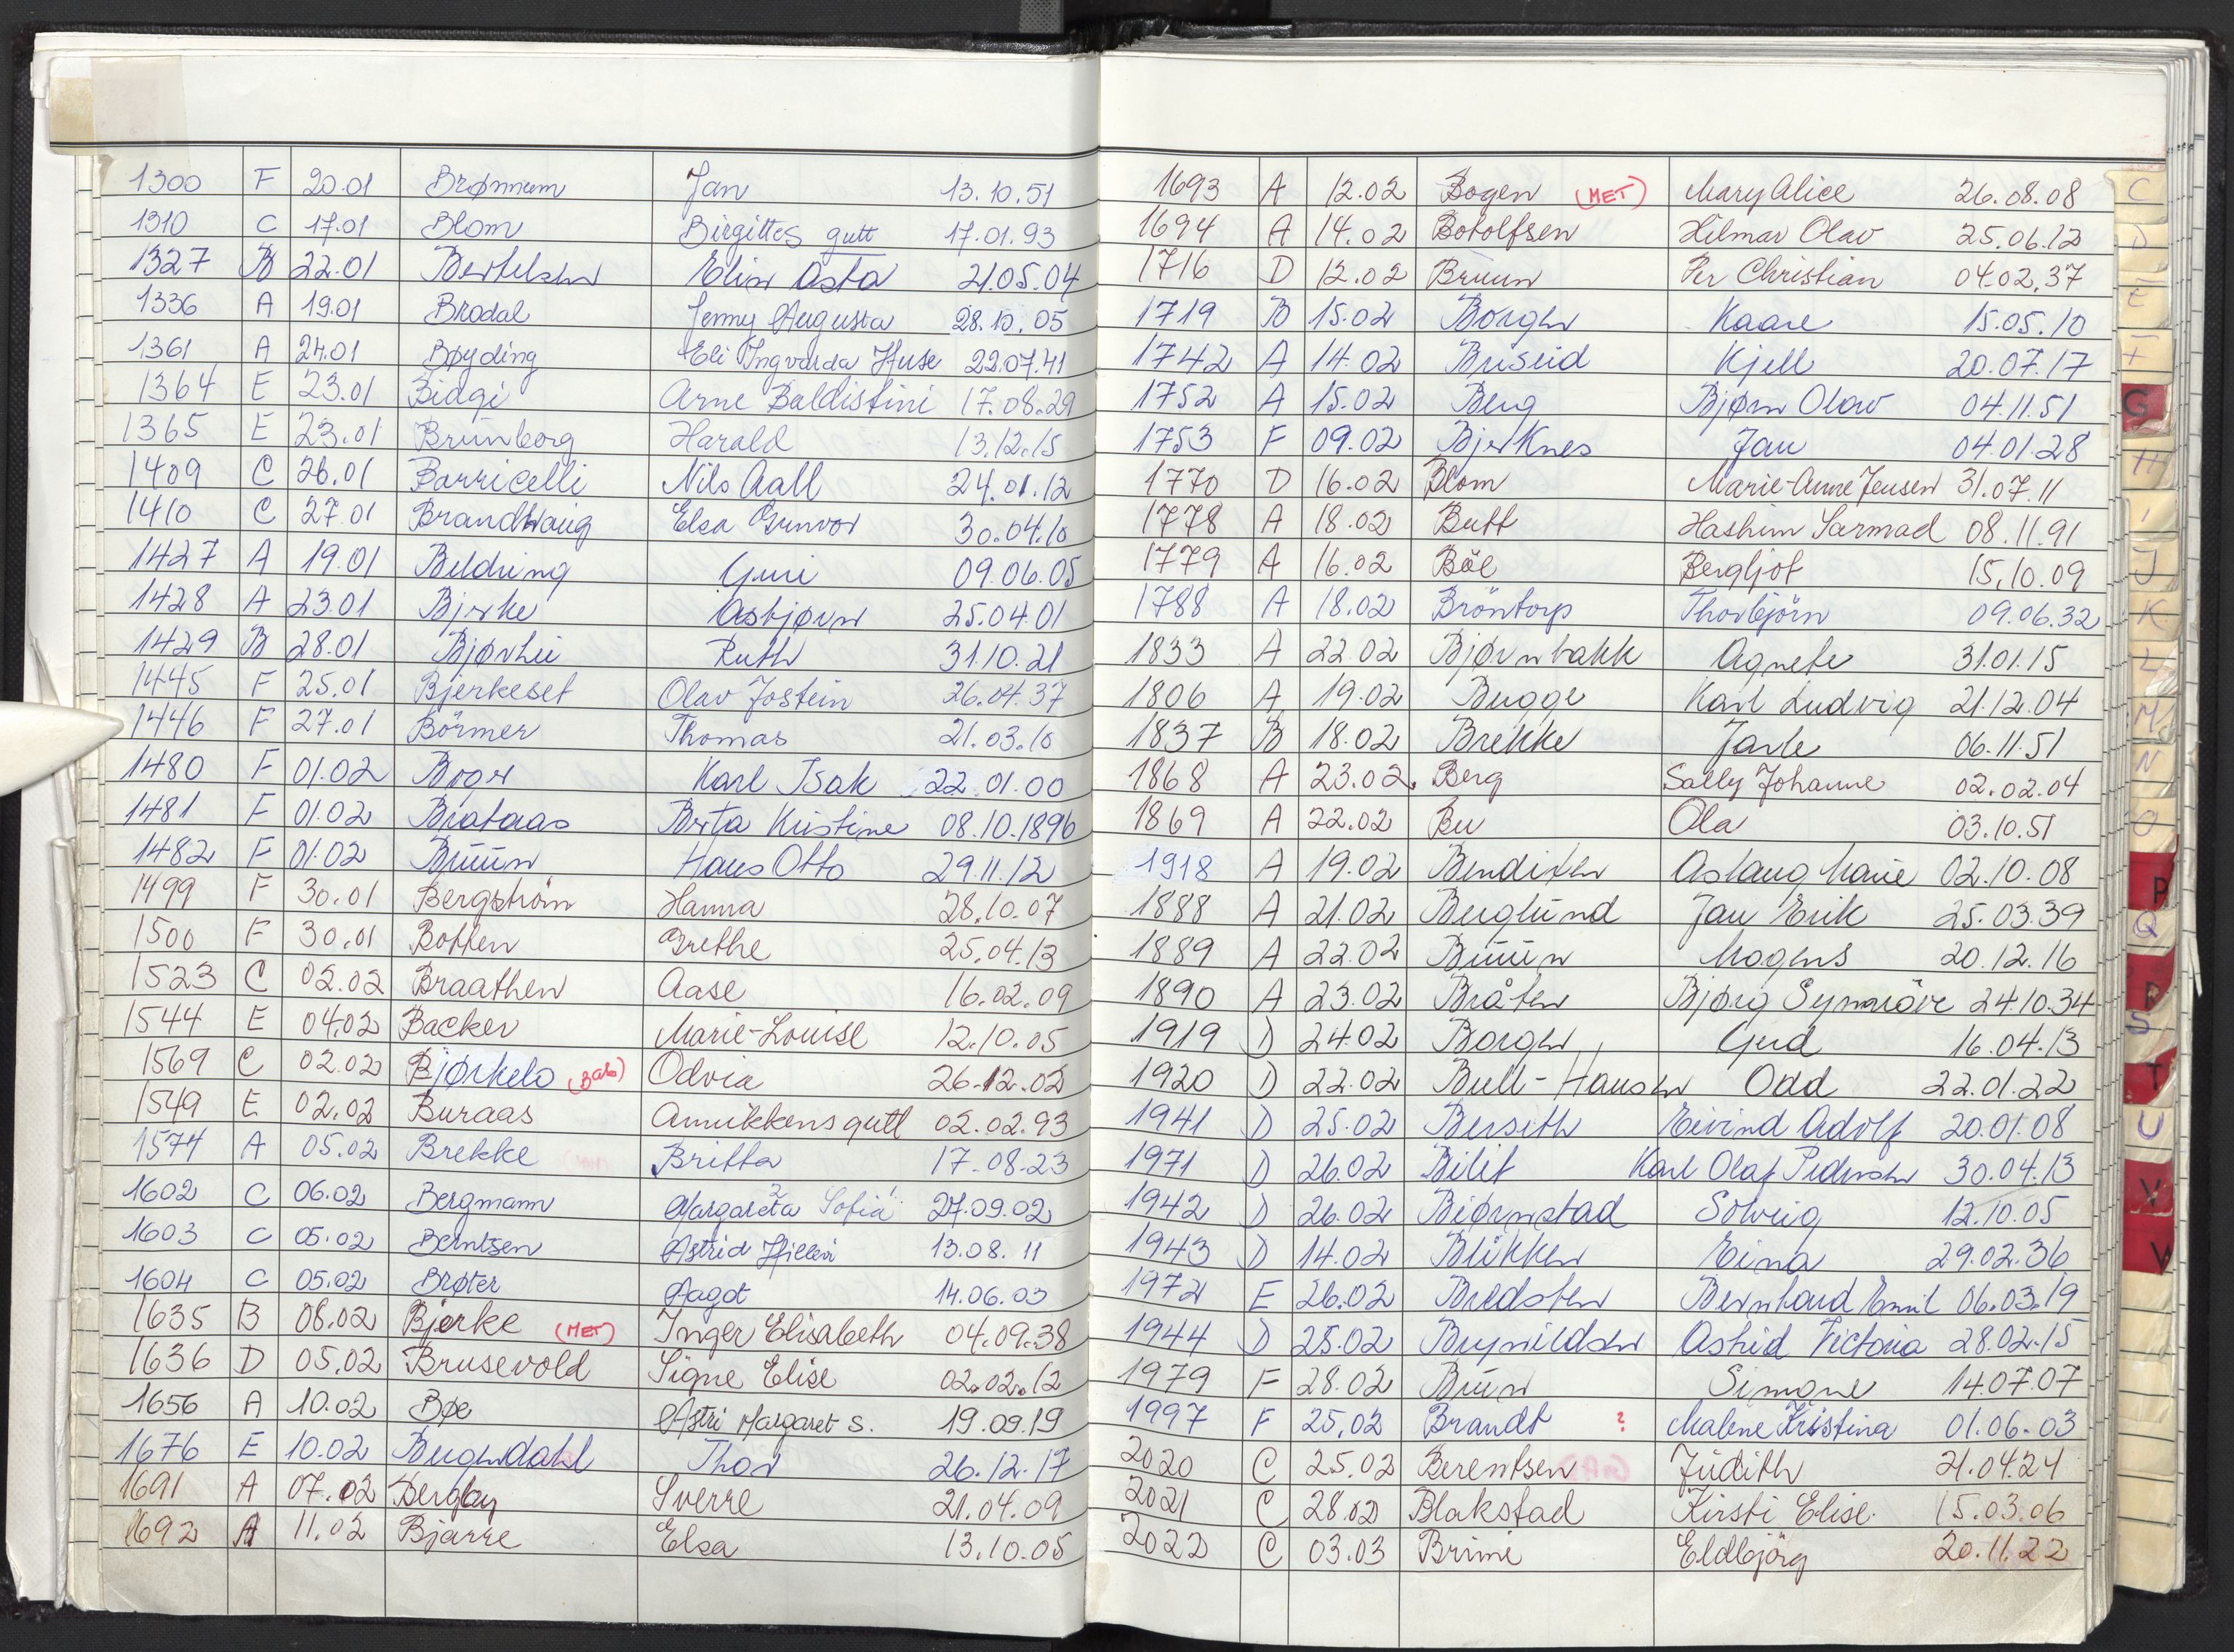 1300 F 20.01 Brømnum Jan 13.10.51
1310 C 17.01 Blom Birgittes gutt 17.01.93
1327 B 22.01 Bertelsen Elin Asta 21.05.04
1336 A 19.01 Brodal Jenny Augusta 28.10.05
1361 A 24.01 Bøyding Eli Ingvarda Huse 22.07.41
1364 E 23.01 Biagi Arne Baldistini 17.08.29
1365 E 23.01 Brunborg Harald 13.12.15
1409 C 26.01 Barricelli Nils Aall 24.01.12
1410 C 27.01 Brandhaug Elsa Gunvor 30.04.10
1427 A 19.01 Beldring Guri 09.06.05
1428 A 23.01 Bjerke Asbjørn 25.04.01
1429 B 28.01 Bjørhei Ruth 31.10.21
1445 F 25.01 Bjerkeset Olav Jostein 26.04.37
1446 F 27.01 Börmer Thomas 21.03.10
1480 F 01.02 Boger Karl Isak 22.01.00
1481 F 01.02 Brataas Berta Kristine 08.10.1896
1482 F 01.02 Bruun Hans Otto 29.11.12
1499 F 30.01 Bergström Hanna 28.10.07
1500 F 30.01 Botten Grethe 25.04.13
1523 C 02.02 Braathen Aase 16.02.09
1544 E 04.02 Backer Marie-Louise 12.10.05
1569 C 02.02 Bjørkelo Odvia 26.12.02
1549 E 02.02 Buraas Annikkens gutt 02.02.93
1574 A 05.02 Brekke Britta 17.08.23
1602 C 06.02 Bergmann Margareta Sofia 27.09.02
1603 C 05.02 Berntsen Astrid 13.08.11
1604 C 05.02 Brøter Aagot 14.06.03
1635 B 08.02 Bjerke (MET) Inger Elisabeth 04.09.38
1636 D 05.02 Brusevold Signe Elise 02.02.12
1656 A 10.02 Bøe Astri Margaret S. 19.09.19
1676 E 10.02 Bergendahl Thor 26.12.17
1691 A 07.02 Bergby Sverre 21.04.09
1692 A 11.02 Bjarre Elsa 13.10.05
1693 A 12.02 Bogen (MET) Mary Alice 26.08.08
1694 A 14.02 Botolfsen Hilmar Olav 25.06.12
1716 D 12.02 Bruun Per Christian 04.02.37
1719 B 15.02 Borgen Kaare 15.05.10
1742 A 14.02 Briseid Kjell 20.07.17
1752 A 15.02 Berg Bjørn Olav 04.11.51
1753 F 09.02 Bjerknes Jan 04.01.28
1770 D 16.02 Blom Marie-Anne Jensen 31.07.11
1778 A 18.02 Butt Hashim Sarmad 08.11.91
1779 A 16.02 Böe Bergljot 15.10.09
1788 A 18.02 Bröntorp Thorbjörn 09.06.32
1833 A 22.02 Bjørnbakk Agnete 31.01.15
1806 A 19.02 Bugge Karl Ludvig 21.12.04
1837 B 18.02 Brekke Jarle 06.11.51
1868 A 23.02. Berg Sally Johanne 02.02.04
1869 A 22.02 Bu Ola 03.10.51
1918 A 19.02 Bendixen Aslaug Marie 02.10.08
1888 A 21.02 Berglund Jan Erik 25.03.39
1889 A 22.02 Bruun Mogens 20.12.16
1890 A 23.02 Bråten Bjørg Synnöve 24.10.34
1919 D 24.02 Borgen Gerd 16.04.13
1920 D 22.02 Bull-Hansen Odd 22.01.22
1941 D 25.02 Berseth Eivind Adolf 20.01.08
1971 D 26.02 Bilit Karl Olaf Pedersen 30.04.13
1942 D 26.02 Bjørnstad Solveig 12.10.05
1943 D 14.02 Blikken Eina 29.02.36
1972 E 26.02 Bredsten Bernhard Emil 06.03.19
1944 D 25.02 Brynildsen Astrid Victoria 28.02.15
1979 F 28.02 Bruun Simone 14.07.07
1997 F 25.02 Brandt ? Malene Kristina 01.06.03
2020 C 25.02 Berentsen Judith 21.04.24
2021 C 28.02 Blakstad Kirsti Elise 15.03.06
2022 C 03.03 Brimi Eldbjörg 20.11.22
C
D
E
F
G
H
I
J
K
L
M
N
O
P
Q
R
S
T
U
V